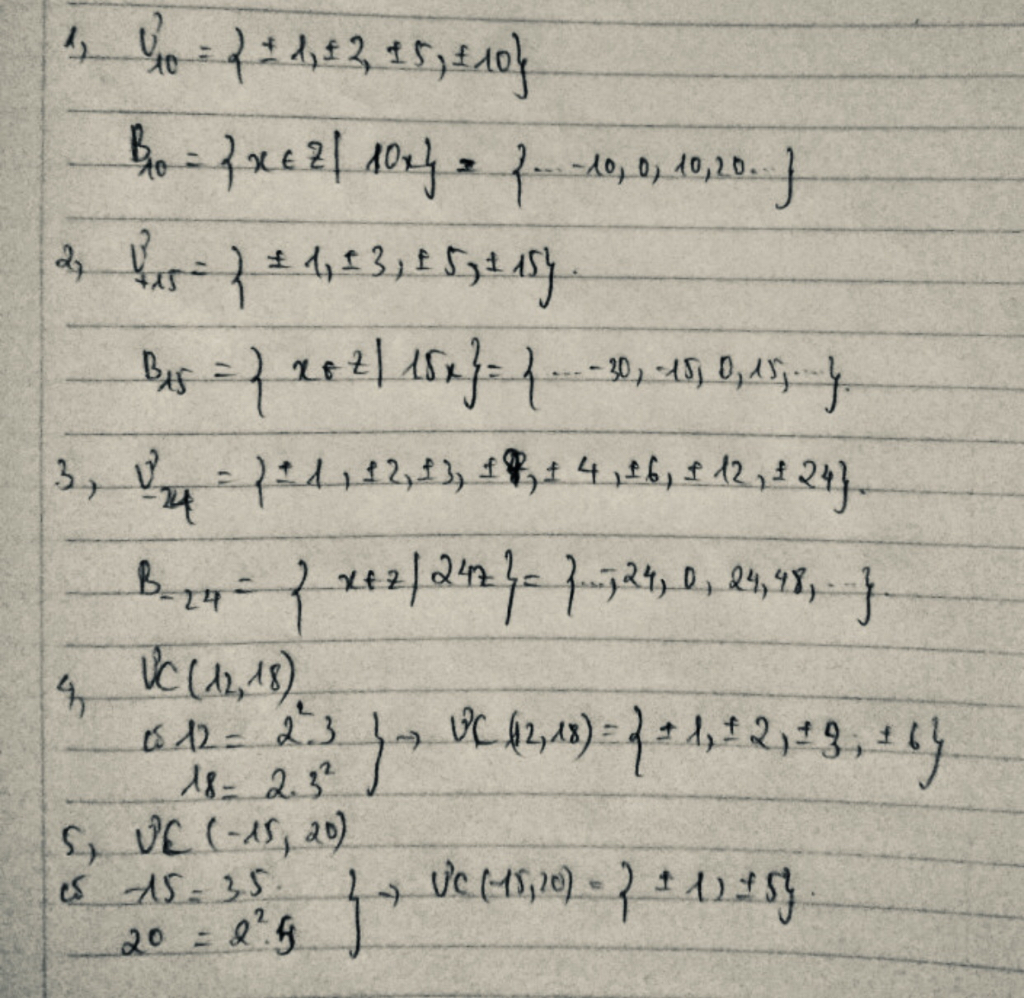 1, Ư10 = { ±1, ±2, ±5, ±10}
B10 = { x ∈ Z | 10x} = {... -10, 0, 10, 20...}
2, Ư-15 = { ±1, ±3, ±5, ±15}.
B15 = { x ∈ Z | 15x} = { ... -30, -15, 0, 15, ...}.
3, Ư-24 = { ±1, ±2, ±3, ±8, ±4, ±6, ±12, ±24}.
B-24 = { x ∈ Z | 24z} = {...; -24, 0, 24, 48, ...}.
4, ƯC (12, 18)
12 = 2².3 } → ƯC (12, 18) = { ±1, ±2, ±3, ±6}
18 = 2.3²
5, ƯC (-15, 20)
-15 = 3.5. } → ƯC (-15, 20) = { ±1, ±5}.
20 = 2².5